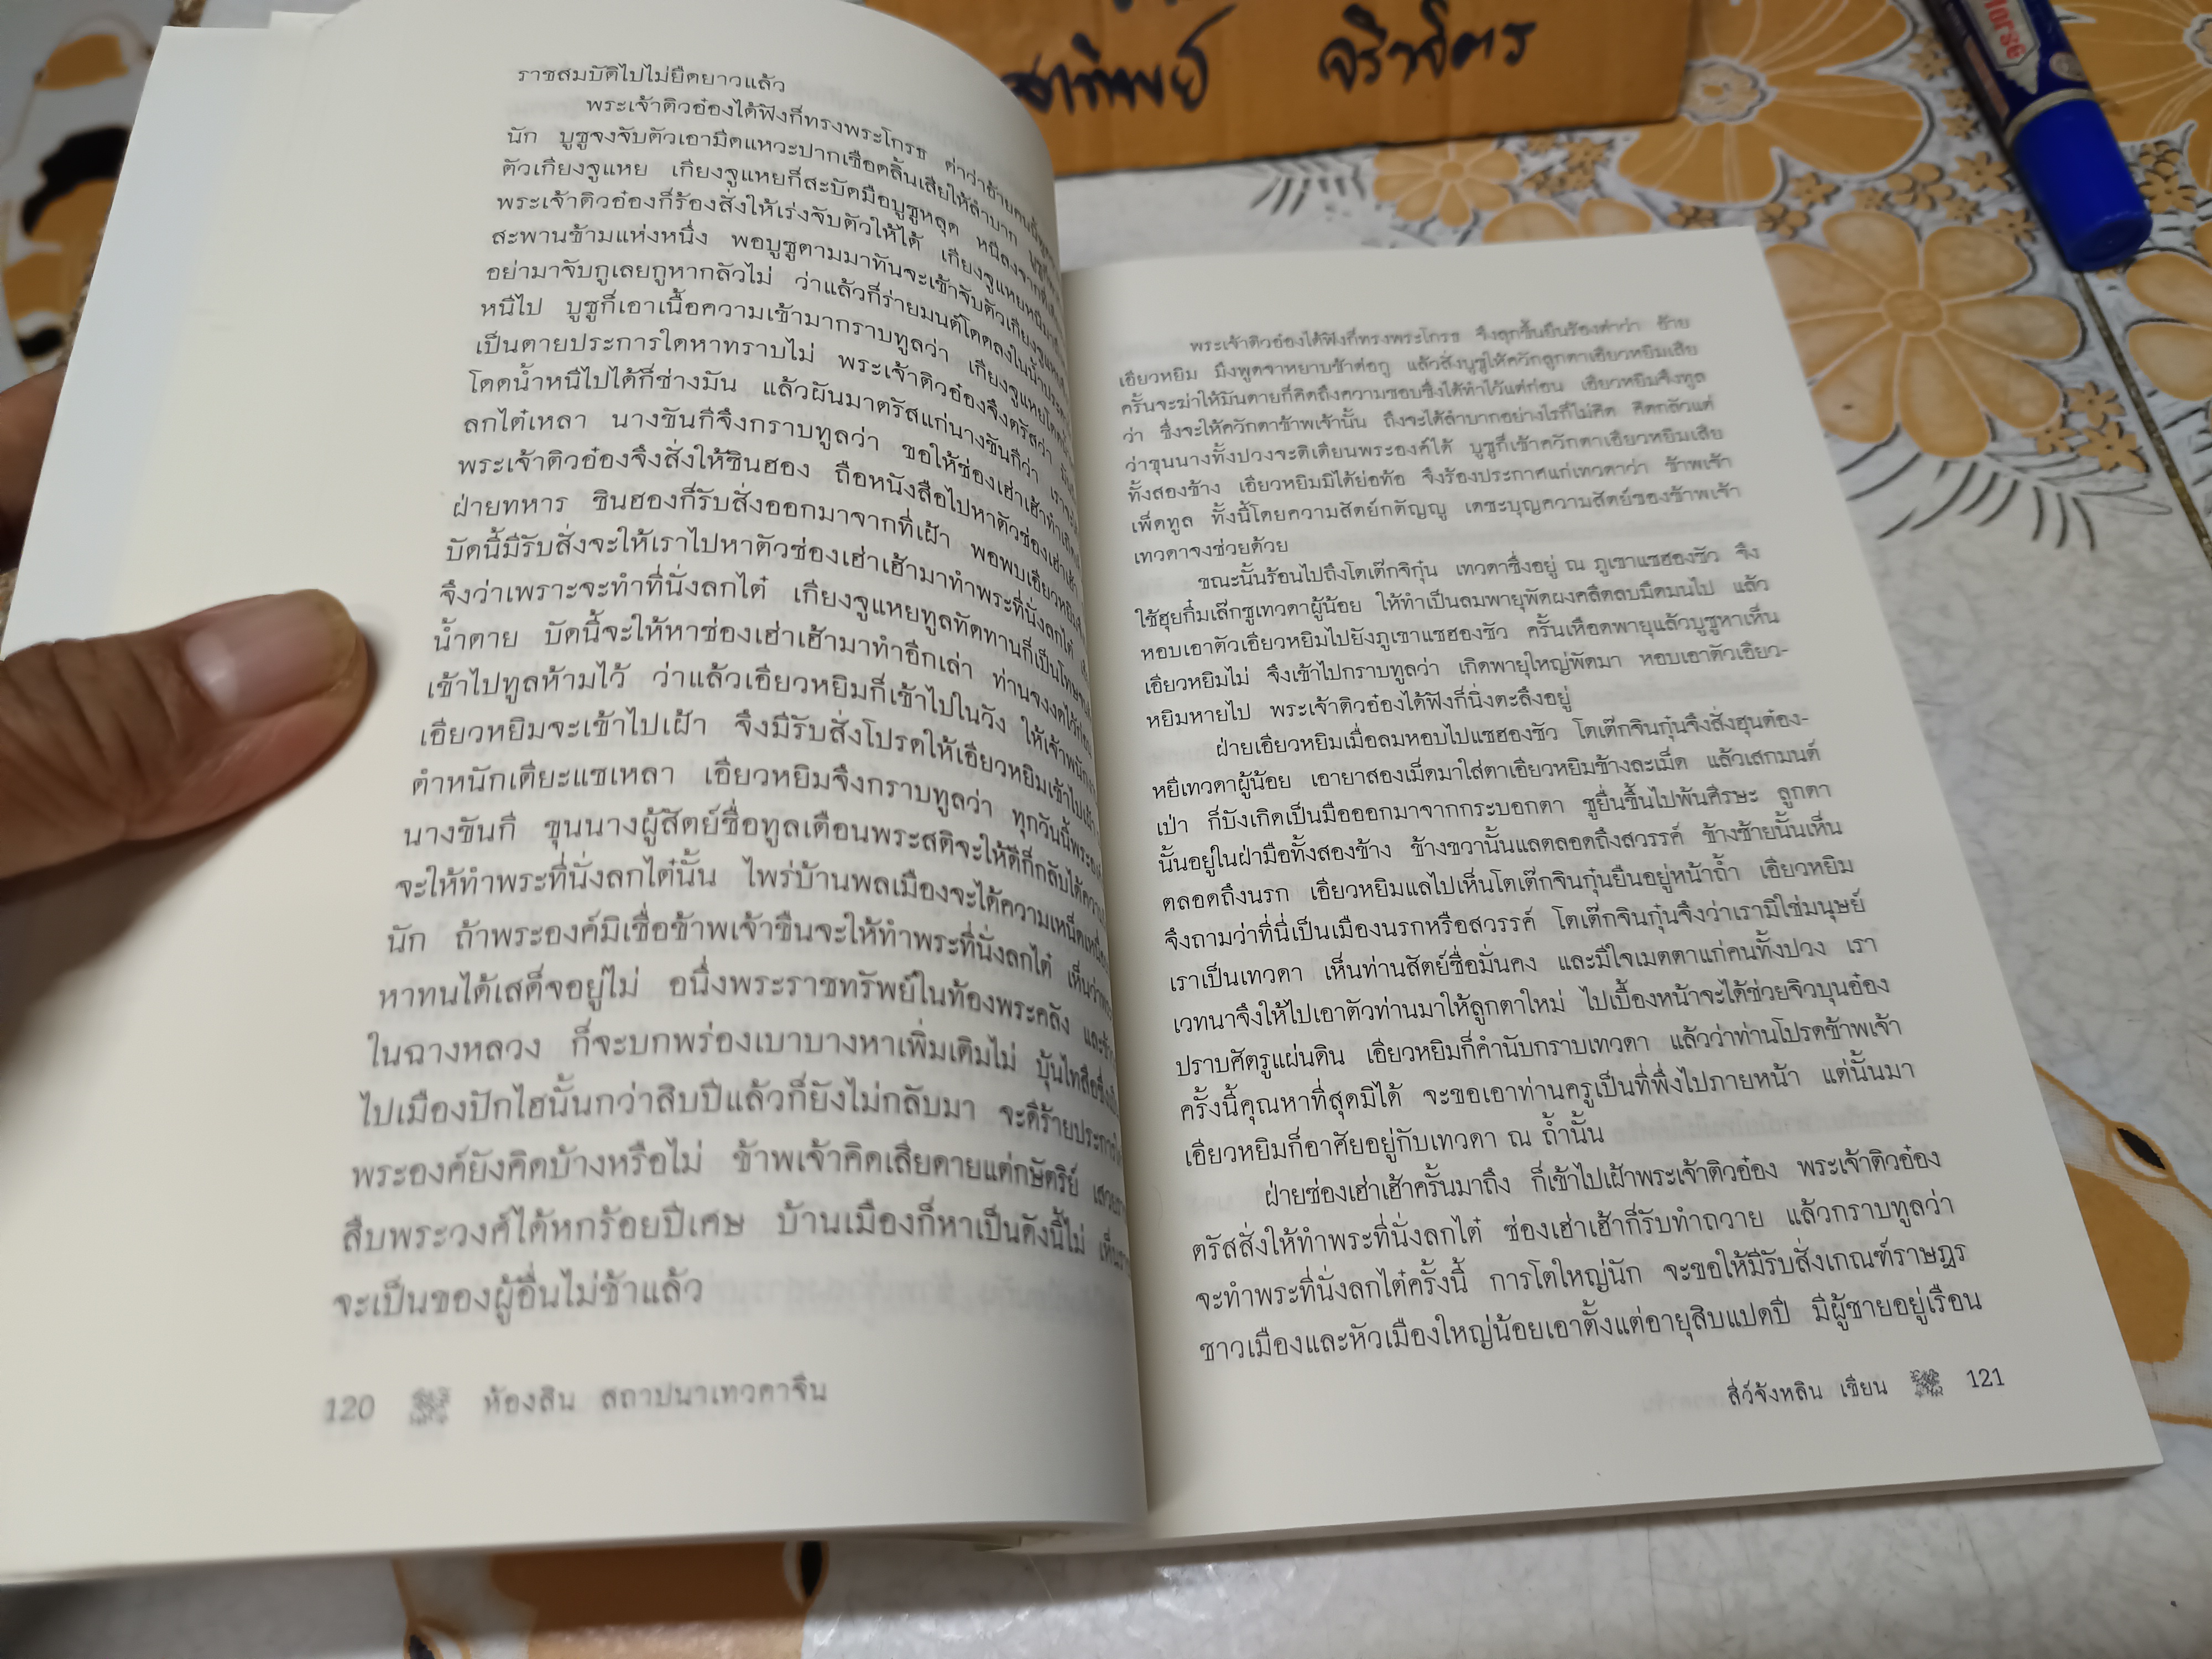 ราชสมบัติไปไม่ยืดยาวแล้ว
พระเจ้าติวอ๋องได้ฟังก็ทรงพระโกรธ ด่าว่าอ้ายคนนี้
นัก บูซูจงจับตัวเอามีดแหวะปากเชือดลิ้นเสียให้ลำบาก
ตัวเกียงจูแหย เกียงจูแหยก็สะบัดมือบูซูหลุด หนีลงจาก
พระเจ้าติวอ๋องก็ร้องสั่งให้เร่งจับตัวให้ได้ เกียงจูแหยหนี
สะพานข้ามแห่งหนึ่ง พอบูซูตามมาทันจะเข้าจับตัวเกียงจูแหย
อย่ามาจับกูเลยกูหากลัวไม่ ว่าแล้วก็ร่ายมนต์โดดลงในน้ำ
หนีไป บูซูก็เอาเนื้อความเข้ามากราบทูลว่า เกียงจูแหยโดด
เป็นตายประการใดหาทราบไม่ พระเจ้าติวอ๋องจึงตรัสว่า
โดดน้ำหนีไปได้ก็ช่างมัน แล้วผันมาตรัสแก่นางขันกีว่า
ลกไต๋เหลา นางขันกีจึงกราบทูลว่า ขอให้ช่องเฮ่าเฮ้าทำ
พระเจ้าติวอ๋องจึงสั่งให้ซินฮอง ถือหนังสือไปหาตัวช่องเฮ่าเฮ้า
ฝ่ายทหาร ซินฮองก็รับสั่งออกมาจากที่เฝ้า พอพบเอียวหยิม
บัดนี้มีรับสั่งจะให้เราไปหาตัวช่องเฮ่าเฮ้ามาทำพระที่นั่งลกไต๋
จึงว่าเพราะจะทำที่นั่งลกไต๋ เกียงจูแหยทูลทัดทานก็เป็นโทษ
น้ำตาย บัดนี้จะให้หาช่องเฮ่าเฮ้ามาทำอีกเล่า ท่านจงงดไว้ก่อน
เข้าไปทูลห้ามไว้ ว่าแล้วเอียวหยิมก็เข้าไปในวัง ให้เจ้าพนักงาน
เอียวหยิมจะเข้าไปเฝ้า จึงมีรับสั่งโปรดให้เอียวหยิมเข้าไปเฝ้า
ตำหนักเตียะแซเหลา เอียวหยิมจึงกราบทูลว่า ทุกวันนี้พระองค์
นางขันกี ขุนนางผู้สัตย์ซื่อทูลเตือนพระสติจะให้ดีก็กลับได้ความ
จะให้ทำพระที่นั่งลกไต๋นั้น ไพร่บ้านพลเมืองจะได้ความเหน็ดเหนื่อย
นัก ถ้าพระองค์มิเชื่อข้าพเจ้าขืนจะให้ทำพระที่นั่งลกไต๋ เห็นว่า
หาทนได้เสด็จอยู่ไม่ อนึ่งพระราชทรัพย์ในท้องพระคลัง และข้าว
ในฉางหลวง ก็จะบกพร่องเบาบางหาเพิ่มเติมไม่ บุ้นไทสือซึ่ง
ไปเมืองปักไฮนั้นกว่าสิบปีแล้วก็ยังไม่กลับมา จะดีร้ายประการ
พระองค์ยังคิดบ้างหรือไม่ ข้าพเจ้าคิดเสียดายแต่กษัตริย์ เสวย
สืบพระวงศ์ได้หกร้อยปีเศษ บ้านเมืองก็หาเป็นดังนี้ไม่ เห็น
จะเป็นของผู้อื่นไม่ช้าแล้ว
120 ห้องสิน สถาปนาเทวดาจีน
พระเจ้าติวอ๋องได้ฟังก็ทรงพระโกรธ จึงลุกขึ้นยืนร้องด่าว่า อ้าย
เอียวหยิม มึงพูดจาหยาบช้าต่อกู แล้วสั่งบูซูให้ควักลูกตาเอียวหยิมเสีย
ครั้นจะฆ่าให้มันตายก็คิดถึงความชอบซึ่งได้ทำไว้แต่ก่อน เอียวหยิมจึงทูล
ว่า ซึ่งจะให้ควักตาข้าพเจ้านั้น ถึงจะได้ลำบากอย่างไรก็ไม่คิด คิดกลัวแต่
ว่าขุนนางทั้งปวงจะติเตียนพระองค์ได้ บูซูก็เข้าควักตาเอียวหยิมเสีย
ทั้งสองข้าง เอียวหยิมมิได้ย่อท้อ จึงร้องประกาศแก่เทวดาว่า ข้าพเจ้า
เพ็ดทูล ทั้งนี้โดยความสัตย์กตัญญู เดชะบุญความสัตย์ของข้าพเจ้า
เทวดาจงช่วยด้วย
ขณะนั้นร้อนไปถึงโตเต๊กจิกุ๋น เทวดาซึ่งอยู่ ณ ภูเขาแชฮองซัว จึง
ใช้ฮุยกิ๋มเล๊กซูเทวดาผู้น้อย ให้ทำเป็นลมพายุพัดผงคลีตลบมืดมนไป แล้ว
หอบเอาตัวเอียวหยิมไปยังภูเขาแชฮองซัว ครั้นเหือดพายุแล้วบูซูหาเห็น
เอียวหยิมไม่ จึงเข้าไปกราบทูลว่า เกิดพายุใหญ่พัดมา หอบเอาตัวเอียว-
หยิมหายไป พระเจ้าติวอ๋องได้ฟังก็นิ่งตะลึงอยู่
ฝ่ายเอียวหยิมเมื่อลมหอบไปแชฮองซัว โตเต๊กจินกุ๋นจึงสั่งฮุนต๋อง-
หยี่เทวดาผู้น้อย เอายาสองเม็ดมาใส่ตาเอียวหยิมข้างละเม็ด แล้วเสกมนต์
เป่า ก็บังเกิดเป็นมือออกมาจากกระบอกตา ชูยื่นขึ้นไปพ้นศีรษะ ลูกตา
นั้นอยู่ในฝ่ามือทั้งสองข้าง ข้างขวานั้นแลตลอดถึงสวรรค์ ข้างซ้ายนั้นเห็น
ตลอดถึงนรก เอียวหยิมแลไปเห็นโตเต๊กจินกุ๋นยืนอยู่หน้าถ้ำ เอียวหยิม
จึงถามว่าที่นี่เป็นเมืองนรกหรือสวรรค์ โตเต๊กจินกุ๋นจึงว่าเรามิใช่มนุษย์
เราเป็นเทวดา เห็นท่านสัตย์ซื่อมั่นคง และมีใจเมตตาแก่คนทั้งปวง เรา
เวทนาจึงให้ไปเอาตัวท่านมาให้ลูกตาใหม่ ไปเบื้องหน้าจะได้ช่วยจิวบุนอ๋อง
ปราบศัตรูแผ่นดิน เอียวหยิมก็คำนับกราบเทวดา แล้วว่าท่านโปรดข้าพเจ้า
ครั้งนี้คุณหาที่สุดมิได้ จะขอเอาท่านครูเป็นที่พึ่งไปภายหน้า แต่นั้นมา
เอียวหยิมก็อาศัยอยู่กับเทวดา ณ ถ้ำนั้น
ฝ่ายช่องเฮ่าเฮ้าครั้นมาถึง ก็เข้าไปเฝ้าพระเจ้าติวอ๋อง พระเจ้าติวอ๋อง
ตรัสสั่งให้ทำพระที่นั่งลกไต๋ ช่องเฮ่าเฮ้าก็รับทำถวาย แล้วกราบทูลว่า
จะทำพระที่นั่งลกไต๋ครั้งนี้ การโตใหญ่นัก จะขอให้มีรับสั่งเกณฑ์ราษฎร
ชาวเมืองและหัวเมืองใหญ่น้อยเอาตั้งแต่อายุสิบแปดปี มีผู้ชายอยู่เรือน
สี่ว์จ้งหลิน เขียน 121
Horse